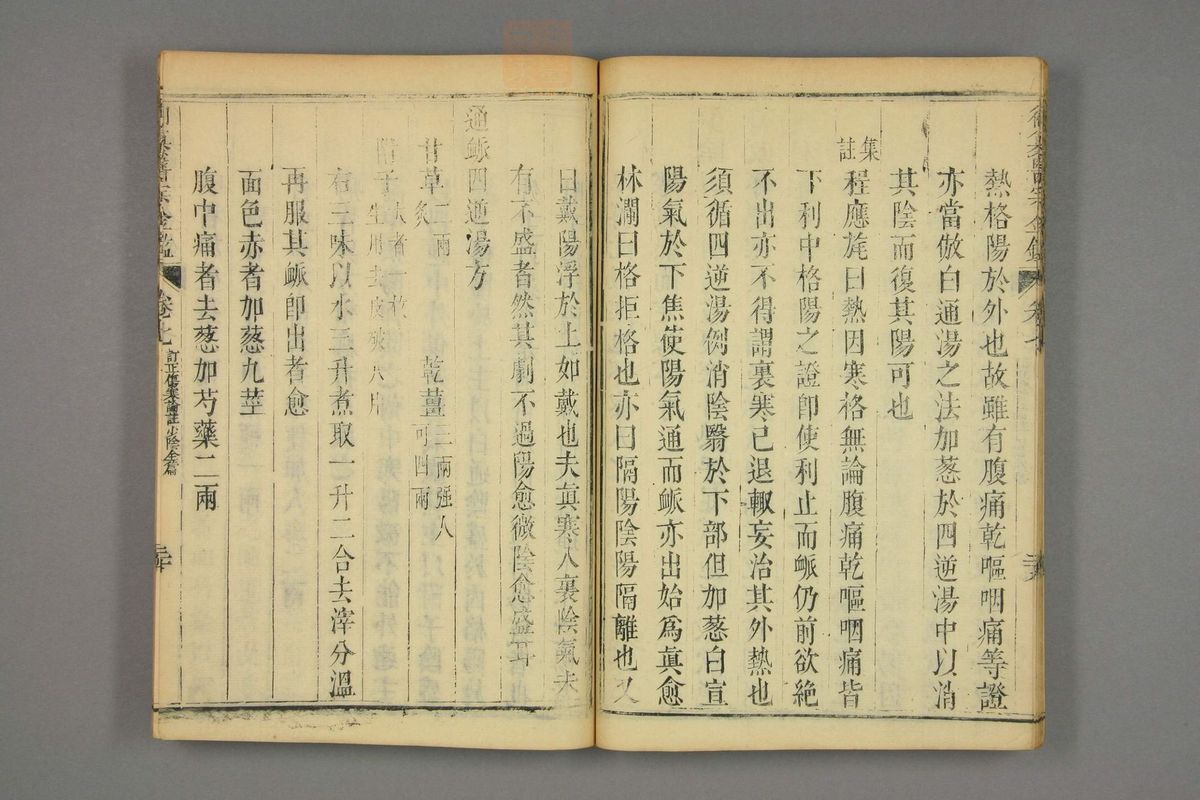 熱格陽於外也故雖有腹痛乾嘔咽痛等證
亦當倣白通湯之法加葱於四逆湯中以消
其陰而復其陽可也
集註
程應旄曰熱因寒格無論腹痛乾嘔咽痛皆
下利中格陽之證卽使利止而䘑仍前欲絶
不出亦不得謂裏寒已退輙妄治其外熱也
須循四逆湯例消陰翳於下部但加葱白宣
陽氣於下焦使陽氣通而䘑亦出始爲眞愈
林瀾曰格拒格也亦曰隔陽陰陽隔離也又
曰戴陽浮於上如戴也夫眞寒入裏陰氣未
有不盛者然其劇不過陽愈微陰愈盛耳
通䘑四逆湯方
甘草二兩炙
乾薑三兩强人可四兩
附子大者一枚生用去皮破八片
右三味以水三升煮取一升二合去滓分溫
再服其䘑卽出者愈
面色赤者加葱九莖
腹中痛者去葱加芍藥二兩
卷七
訂正傷寒論註少陰全篇